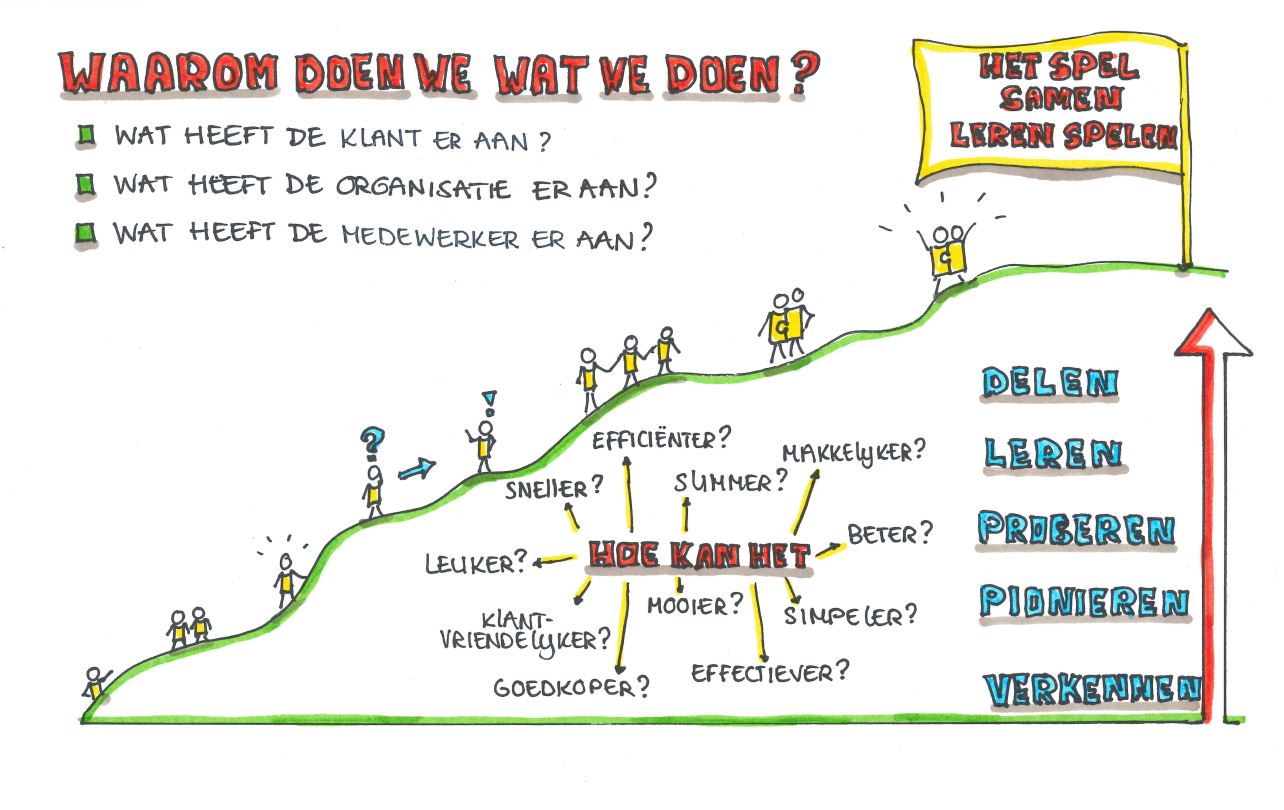 WAAROM DOEN WE WAT WE DOEN?
WAT HEEFT DE KLANT ER AAN?
WAT HEEFT DE ORGANISATIE ER AAN?
WAT HEEFT DE MEDEWERKER ER AAN?
HET SPEL
SAMEN
LEREN SPELEN
?
!
EFFICIËNTER?
MAKKELIJKER?
SNELLER?
SLIMMER?
BETER?
HOE KAN HET
LEUKER?
MOOIER?
SIMPELER?
KLANT-
VRIENDELIJKER?
EFFECTIEVER?
GOEDKOPER?
DELEN
LEREN
PROBEREN
PIONIEREN
VERKENNEN